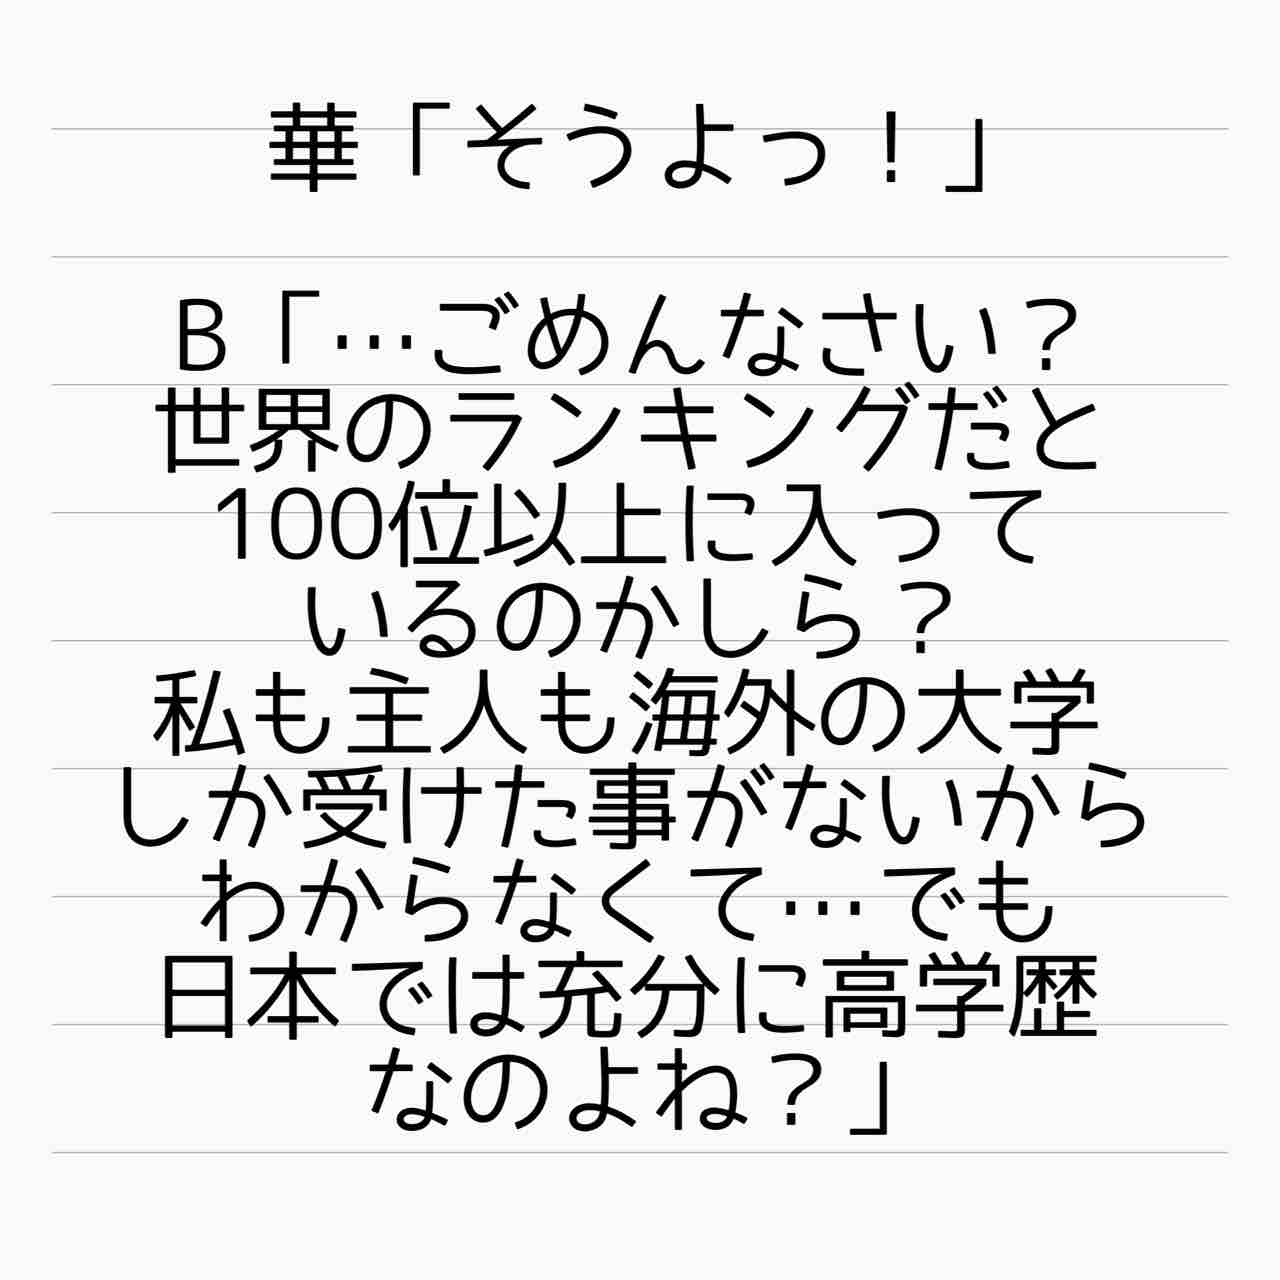 華「そうよっ！」
B「…ごめんなさい？
世界のランキングだと
100位以上に入って
いるのかしら？
私も主人も海外の大学
しか受けた事がないから
わからなくて…でも
日本では充分に高学歴
なのよね？」